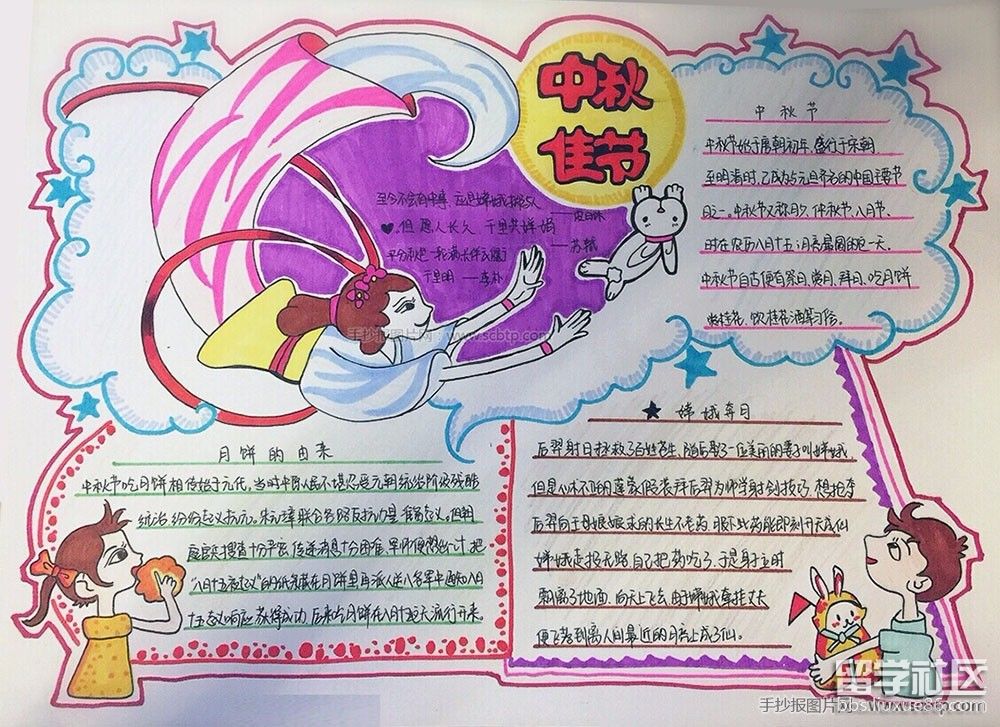 中秋
佳节
至今不会自中事,应是嫦娥掷与人
但愿人长久,千里共婵娟
——苏轼
平分秋色一轮满,长伴云衢
千里明 ——李朴
手抄报图片网 www.scbtp.com
中秋节
中秋节始于唐朝初年,盛行于宋朝,
至明清时,已成为与元旦齐名的中国主要节
日之一。中秋节又称月夕、仲秋节、八月节、
时在农历八月十五;月亮最圆的一天。
中秋节自古便有祭月、赏月、拜月、吃月饼
赏桂花、饮桂花酒等习俗。
月饼的由来
中秋节吃月饼相传始于元代,当时中原人民不堪忍受元朝统治阶级残酷
统治 纷纷起义抗元。朱元璋联合各路反抗力量准备起义。但朝
庭官兵搜查十分严密,传递消息十分困难,军师便想出一计,把
“八月十五夜起义”的纸条藏在月饼里,再派人送入各军中通知八月
十五起义响应,获得成功,后来吃月饼在八月十五大流行开来。
嫦娥奔月
后羿射日拯救了百姓苍生,随后娶了一位美丽的妻子叫嫦娥,
但是心术不正的蓬蒙假装拜后羿为师学射剑技巧,想抢夺
后羿向王母娘娘求的长生不老药,服下此药能即刻升天成仙
嫦娥走投无路自己把药吃了,于是身子立时
飘离了地面,向天上飞去,由于嫦娥牵挂丈夫
便飞落到离人间最近的月亮上成了仙。
留学社区
手抄报图片网
bbs.liuxue86.com